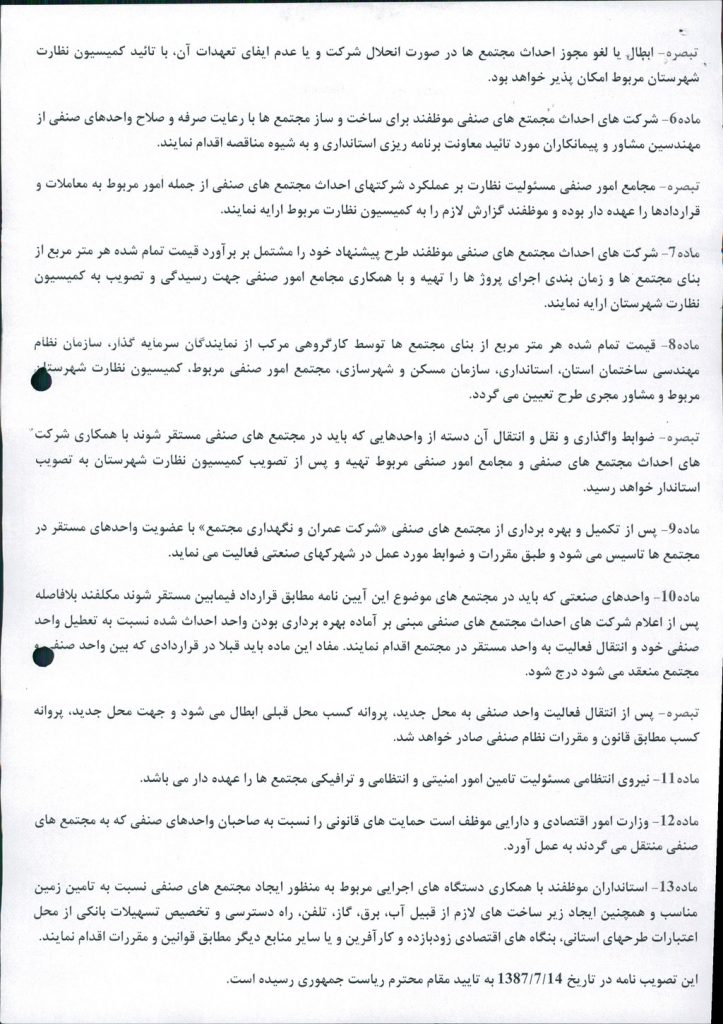 تبصره- ابطال یا لغو مجوز احداث مجتمع ها در صورت انحلال شرکت و یا عدم ایفای تعهدات آن، با تائید کمیسیون نظارت
شهرستان مربوط امکان پذیر خواهد بود.
ماده6- شرکت های احداث مجمتع های صنفی موظفند برای ساخت و ساز مجتمع ها با رعایت صرفه و صلاح واحدهای صنفی از
مهندسین مشاور و پیمانکاران مورد تائید معاونت برنامه ریزی استانداری و به شیوه مناقصه اقدام نمایند.
تبصره- مجامع امور صنفی مسئولیت نظارت بر عملکرد شرکتهای احداث مجتمع های صنفی از جمله امور مربوط به معاملات و
قراردادها را عهده دار بوده و موظفند گزارش لازم را به کمیسیون نظارت مربوط ارایه نمایند.
ماده7- شرکت های احداث مجتمع های صنفی موظفند طرح پیشنهاد خود را مشتمل بر برآورد قیمت تمام شده هر متر مربع از
بنای مجتمع ها و زمان بندی اجرای پروژ ها را تهیه و با همکاری مجامع امور صنفی جهت رسیدگی و تصویب به کمیسیون
نظارت شهرستان ارایه نمایند.
ماده8- قیمت تمام شده هر متر مربع از بنای مجتمع ها توسط کارگروهی مرکب از نمایندگان سرمایه گذار، سازمان نظام
مهندسی ساختمان استان، استانداری، سازمان مسکن و شهرسازی، مجتمع امور صنفی مربوط، کمیسیون نظارت شهرستان
مربوط و مشاور مجری طرح تعیین می گردد.
تبصره- ضوابط واگذاری و نقل و انتقال آن دسته از واحدهایی که باید در مجتمع های صنفی مستقر شوند با همکاری شرکت
های احداث مجتمع های صنفی و مجامع امور صنفی مربوط تهیه و پس از تصویب کمیسیون نظارت شهرستان به تصویب
استاندار خواهد رسید.
ماده9- پس از تکمیل و بهره برداری از مجتمع های صنفی «شرکت عمران و نگهداری مجتمع» با عضویت واحدهای مستقر در
مجتمع ها تاسیس می شود و طبق مقررات و ضوابط مورد عمل در شهرکهای صنعتی فعالیت می نماید.
ماده10- واحدهای صنعتی که باید در مجتمع های موضوع این آیین نامه مطابق قرارداد فیمابین مستقر شوند مکلفند بلافاصله
پس از اعلام شرکت های احداث مجتمع های صنفی مبنی بر آماده بهره برداری بودن واحد احداث شده نسبت به تعطیل واحد
صنفی خود و انتقال فعالیت به واحد مستقر در مجتمع اقدام نمایند. مفاد این ماده باید قبلا در قراردادی که بین واحد صنفی و
مجتمع منعقد می شود درج شود.
تبصره- پس از انتقال فعالیت واحد صنفی به محل جدید، پروانه کسب محل قبلی ابطال می شود و جهت محل جدید، پروانه
کسب مطابق قانون و مقررات نظام صنفی صادر خواهد شد.
ماده11- نیروی انتظامی مسئولیت تامین امور امنیتی و انتظامی و ترافیکی مجتمع ها را عهده دار می باشد.
ماده12- وزارت امور اقتصادی و دارایی موظف است حمایت های قانونی را نسبت به صاحبان واحدهای صنفی که به مجتمع های
صنفی منتقل می گردند به عمل آورد.
ماده13- استانداران موظفند با همکاری دستگاه های اجرایی مربوط به منظور ایجاد مجتمع های صنفی نسبت به تامین زمین
مناسب و همچنین ایجاد زیر ساخت های لازم از قبیل آب، برق، گاز، تلفن، راه دسترسی و تخصیص تسهیلات بانکی از محل
اعتبارات طرحهای استانی، بنگاه های اقتصادی زودبازده و کارآفرین و یا سایر منابع دیگر مطابق قوانین و مقررات اقدام نمایند.
این تصویب نامه در تاریخ 1387/7/14 به تایید مقام محترم ریاست جمهوری رسیده است.